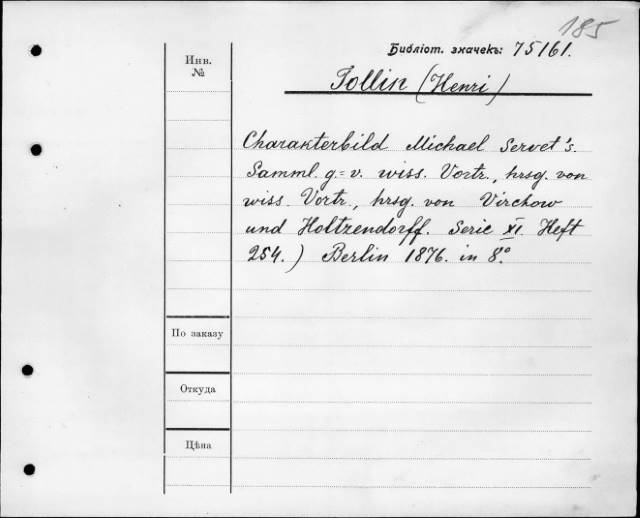 185
Библiот. значекъ: 75161.
Инв.
№
Tollin (Henri)
Charakterbild Michael Servet's.
Samml. g.=v. wiss. Vortr., hrsg. von
wiss. Vortr., hrsg. von Virchow
und Holtzendorff. Serie XI. Heft
254.) Berlin 1876. in 8.°
По заказу
Откуда
Цѣна